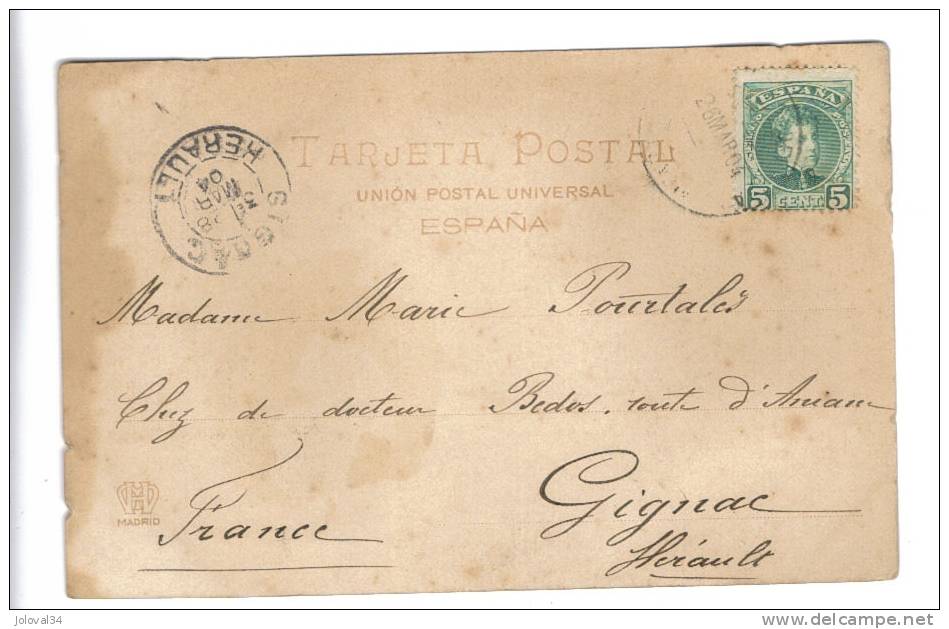 TARJETA POSTAL
UNIÓN POSTAL UNIVERSAL
ESPAÑA
ESPAÑA
5 CENT 5
26 MAR 04
GIGNAC
HERAULT
28
MARS
04
Madame Marie Pourtalès
Chez de docteur Bedos. route d'Aniane
Gignac
Hérault
France
MADRID
joloval34
www.delcampe.net